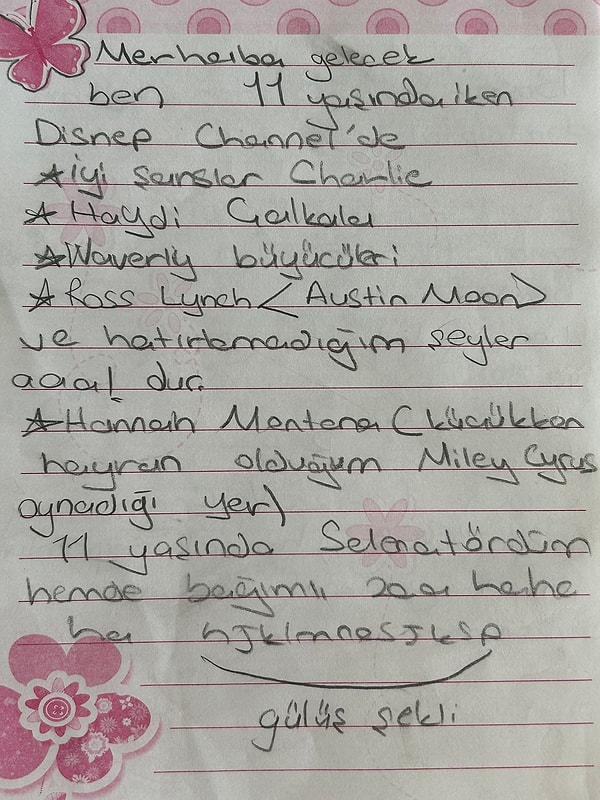 Merhaba gelecek
ben 11 yaşında iken
Disnep Channel'de
☆ iyi şanslar Charlie
☆ Haydi Çalkala
☆ Waverly büyücüleri
☆ Ross Lynch < Austin Moon >
ve hatırlamadığım şeyler
aaa! dur
☆ Hannah Montena ( küçükken
hayran olduğum Miley Cyrus
oynadığı yer)
11 yaşında Selenatördüm
hemde bağımlı haha
ha
gülüş şekli